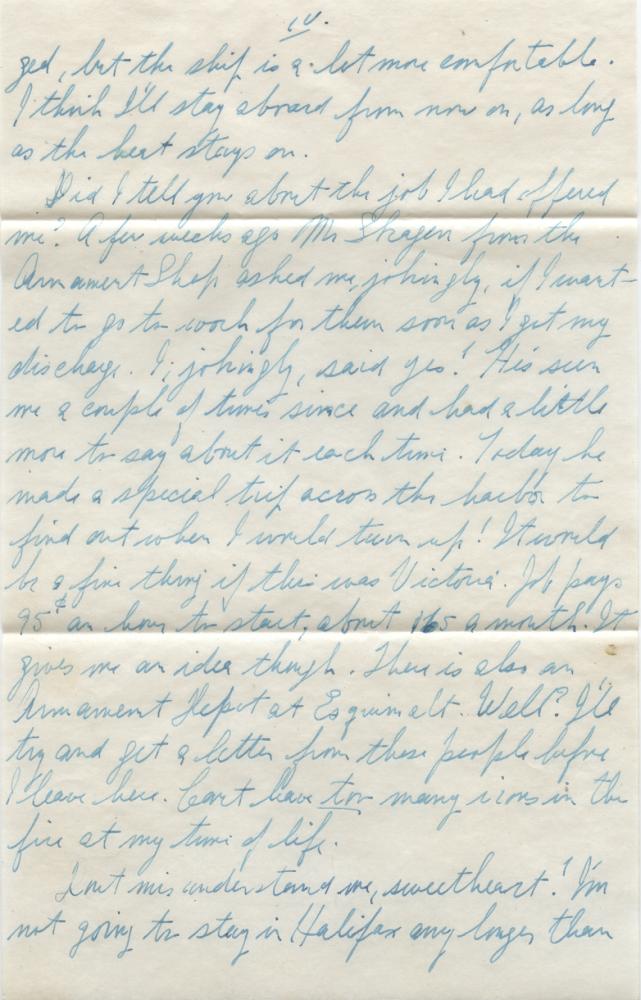 IV.
ged, but the ship is a lot more comfortable.
I think I'll stay aboard from now on, as long
as the heat stays on.
Did I tell you about the job I had offered
me? A few weeks ago Mr from the
Armament Shop asked me, jokingly, if I want-
ed to go to work for them soon as I get my
discharge. I, jokingly, said yes! He's seen
me a couple of times since and had a little
more to say about it each time. Today he
made a special trip across the harbor to
find out when I would turn up! It would
be a fine thing if this was Victoria. Job pays
95¢ an hour to start, about 165 a month. It
gives me an idea though. There is also an
Armament Depot at Esquimalt. Well? I'll
try and get a letter from these people before
I leave here. Can't have too many irons in the
fire at my time of life.
Don't misunderstand me, sweetheart! I'm
not going to stay in Halifax any longer than